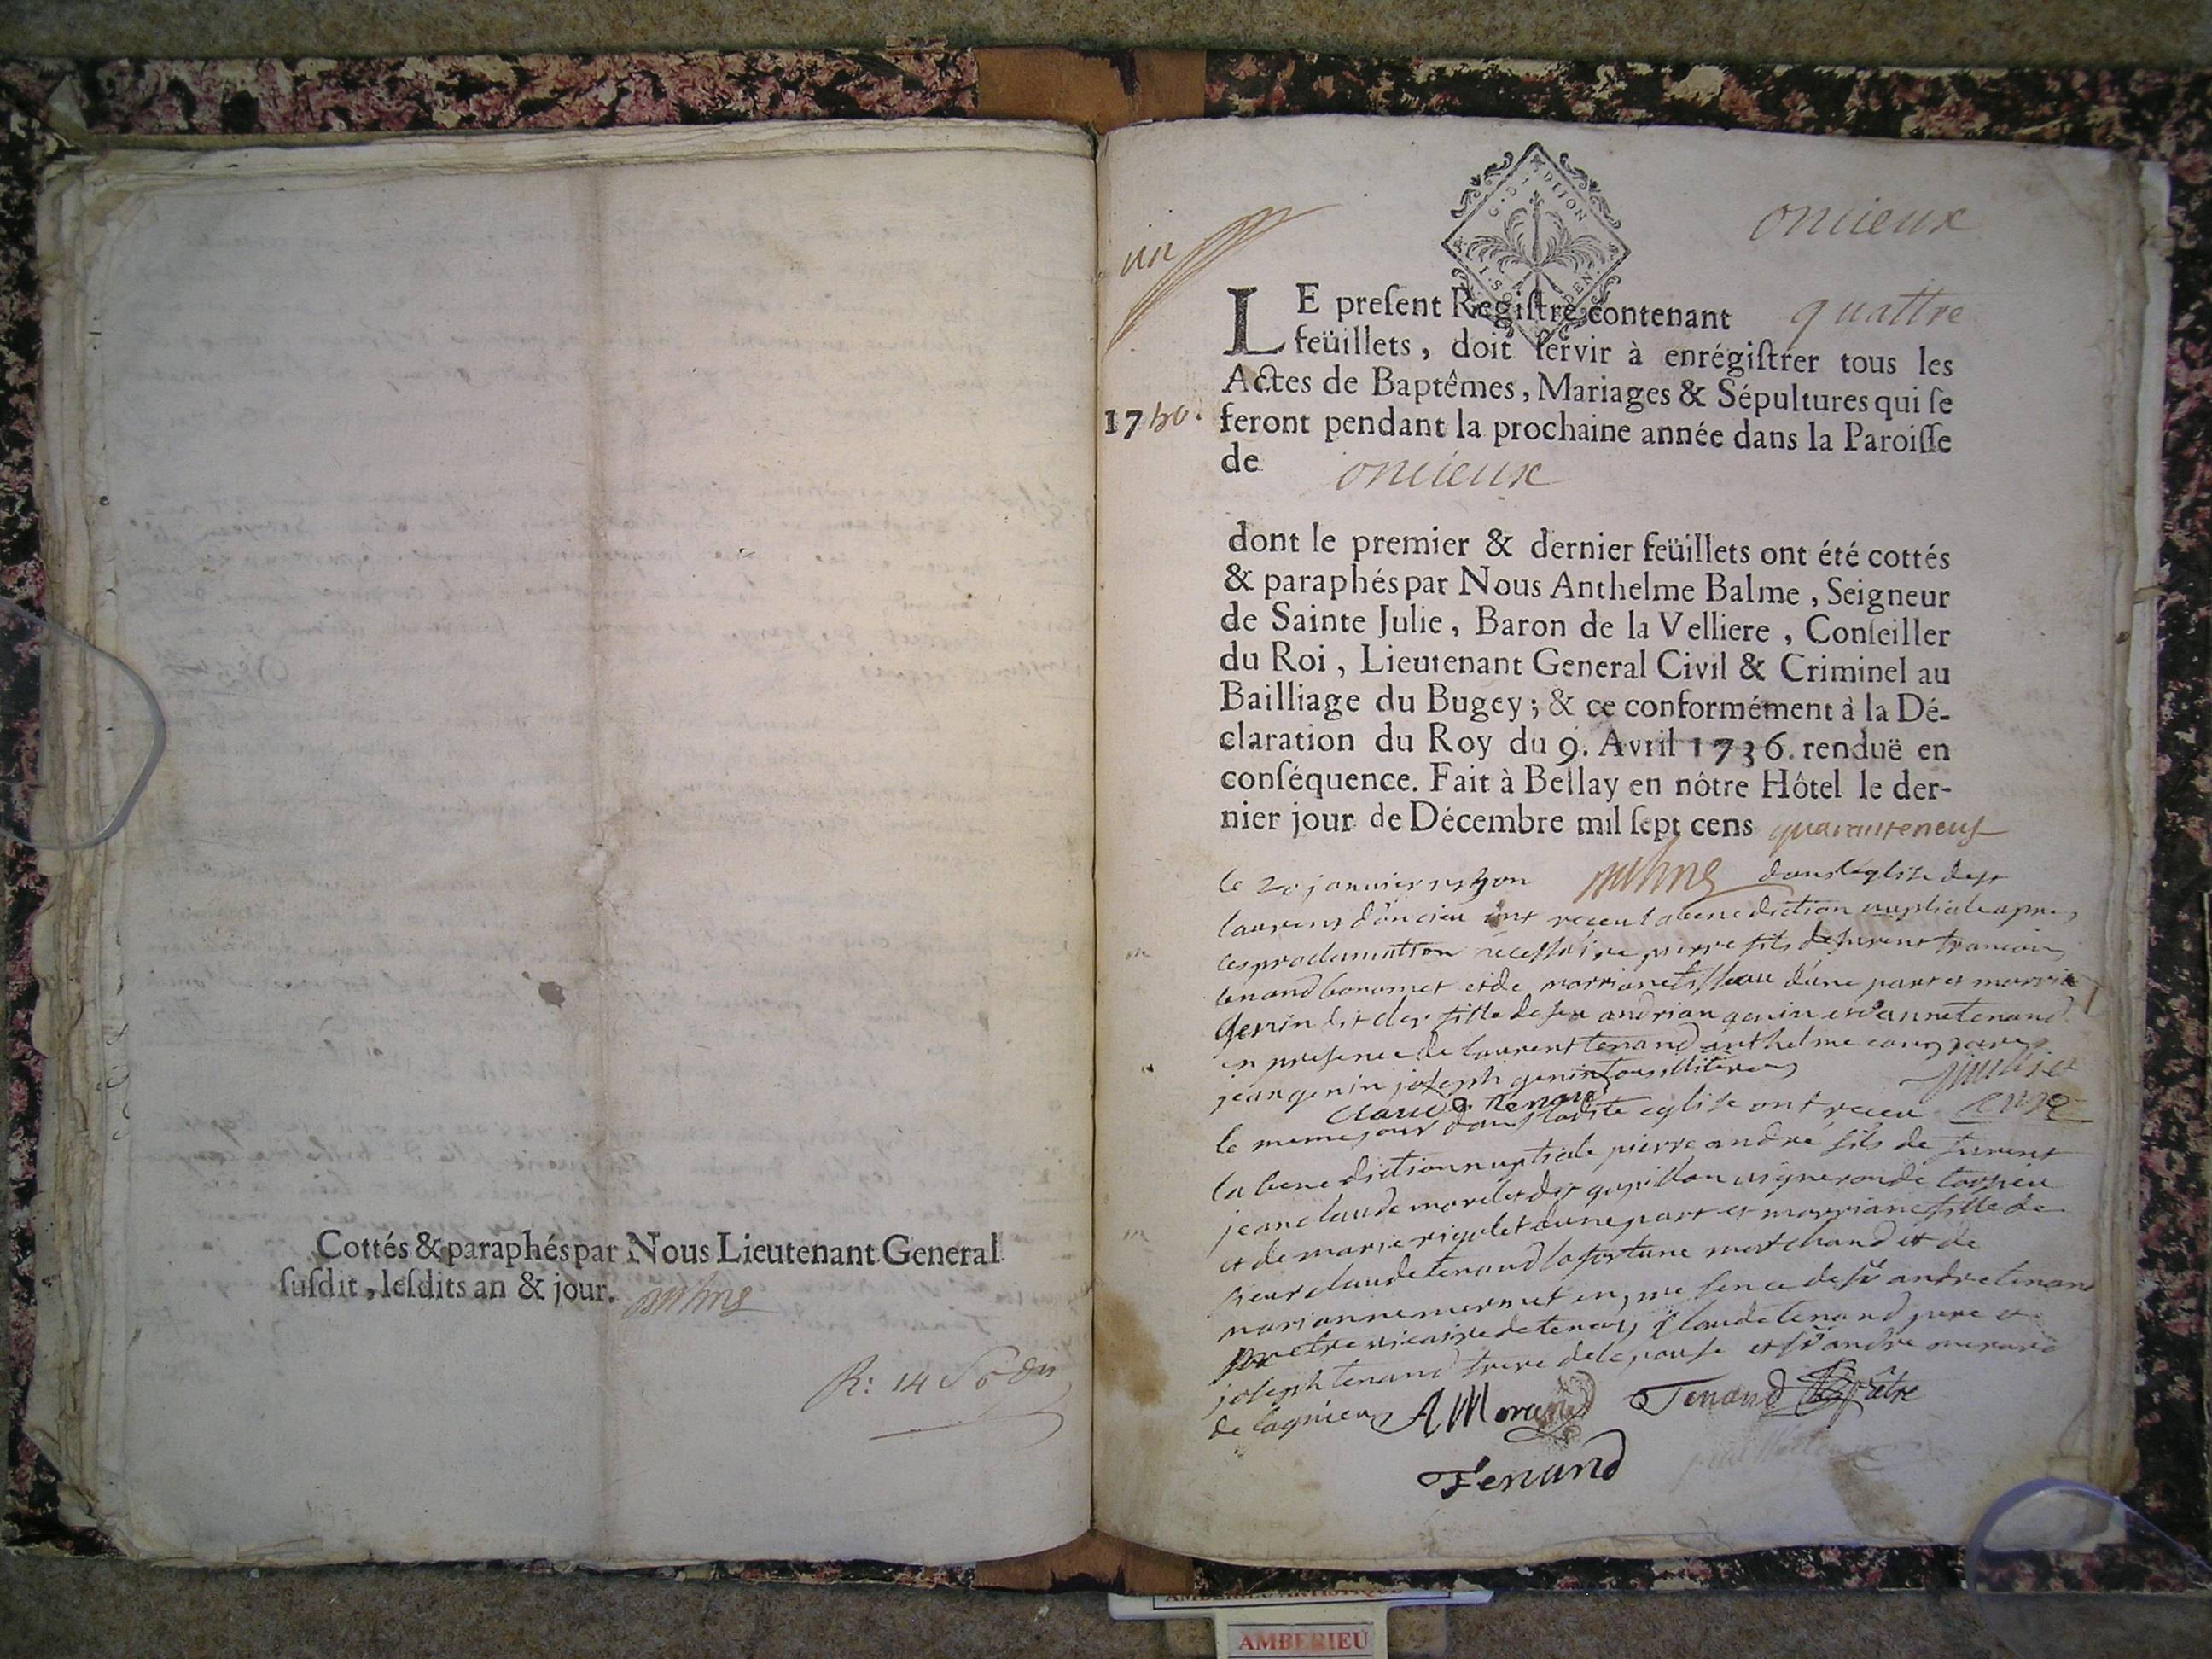 Cottés & paraphés par Nous Lieutenant General
ſuſdit, leſdits an & jour.
R: 14
oncieux
LE preſent Regiſtre contenant quattre
feüillets, doit ſervir à enrégiſtrer tous les
Actes de Baptêmes, Mariages & Sépultures qui ſe
1750. feront pendant la prochaine année dans la Paroiſſe
de oncieux
dont le premier & dernier feüillets ont été cottés
& paraphés par Nous Anthelme Balme, Seigneur
de Sainte Julie, Baron de la Velliere, Conſeiller
du Roi, Lieutenant General Civil & Criminel au
Bailliage du Bugey; & ce conformément à la Dé-
claration du Roy du 9. Avril 1736. renduë en
conſéquence. Fait à Bellay en nôtre Hôtel le der-
nier jour de Décembre mil ſept cens quaranteneuf
le 20 janvier dans léglise de st
laurens doncieu ont receu la benediction nuptiale apres
les proclamation necessaire pierre fils de furent francois
tenand bonamet et de d'une part et
genin dit fille de feu andrian genin et d'anne tenand
en presence de laurent tenand anthelme
jean genin joseph genin
claude tenand
le meme jour dans ladite eglise ont receu
la benediction nuptiale pierre andré fils de furent
jean claude dit vigneron de torcieu
et de marie rigolet dune part et marriane fille de
sieur claude tenand lafortune marchand et de
marianne mermet en presence de sr andre tenand
pretre vicaire de tenay claude tenand pere et
joseph tenand frere de lepouse et sr andre
de lagnieu A Tenand Prêtre
Tenand
AMBERIEU